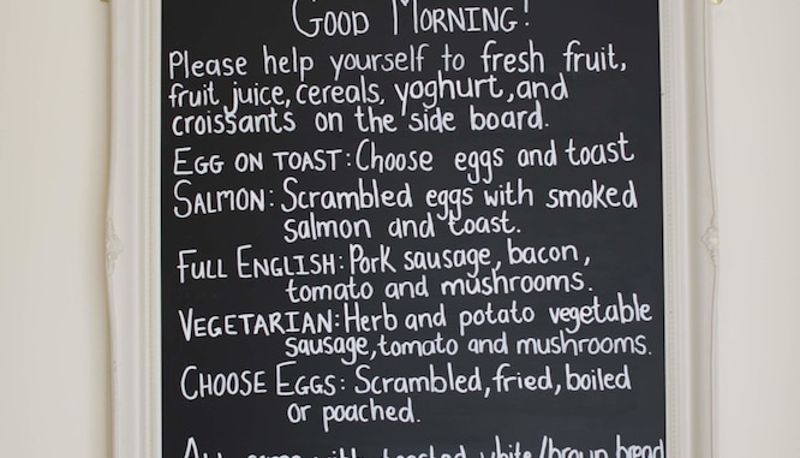 GOOD MORNING!
Please help yourself to fresh fruit,
fruit juice, cereals, yoghurt, and
croissants on the side board.
EGG ON TOAST: Choose eggs and toast
SALMON: Scrambled eggs with smoked
salmon and toast.
FULL ENGLISH: Pork sausage, bacon,
tomato and mushrooms.
VEGETARIAN: Herb and potato vegetable
sausage, tomato and mushrooms.
CHOOSE EGGS: Scrambled, fried, boiled
or poached.
ALL come with toasted white/brown bread